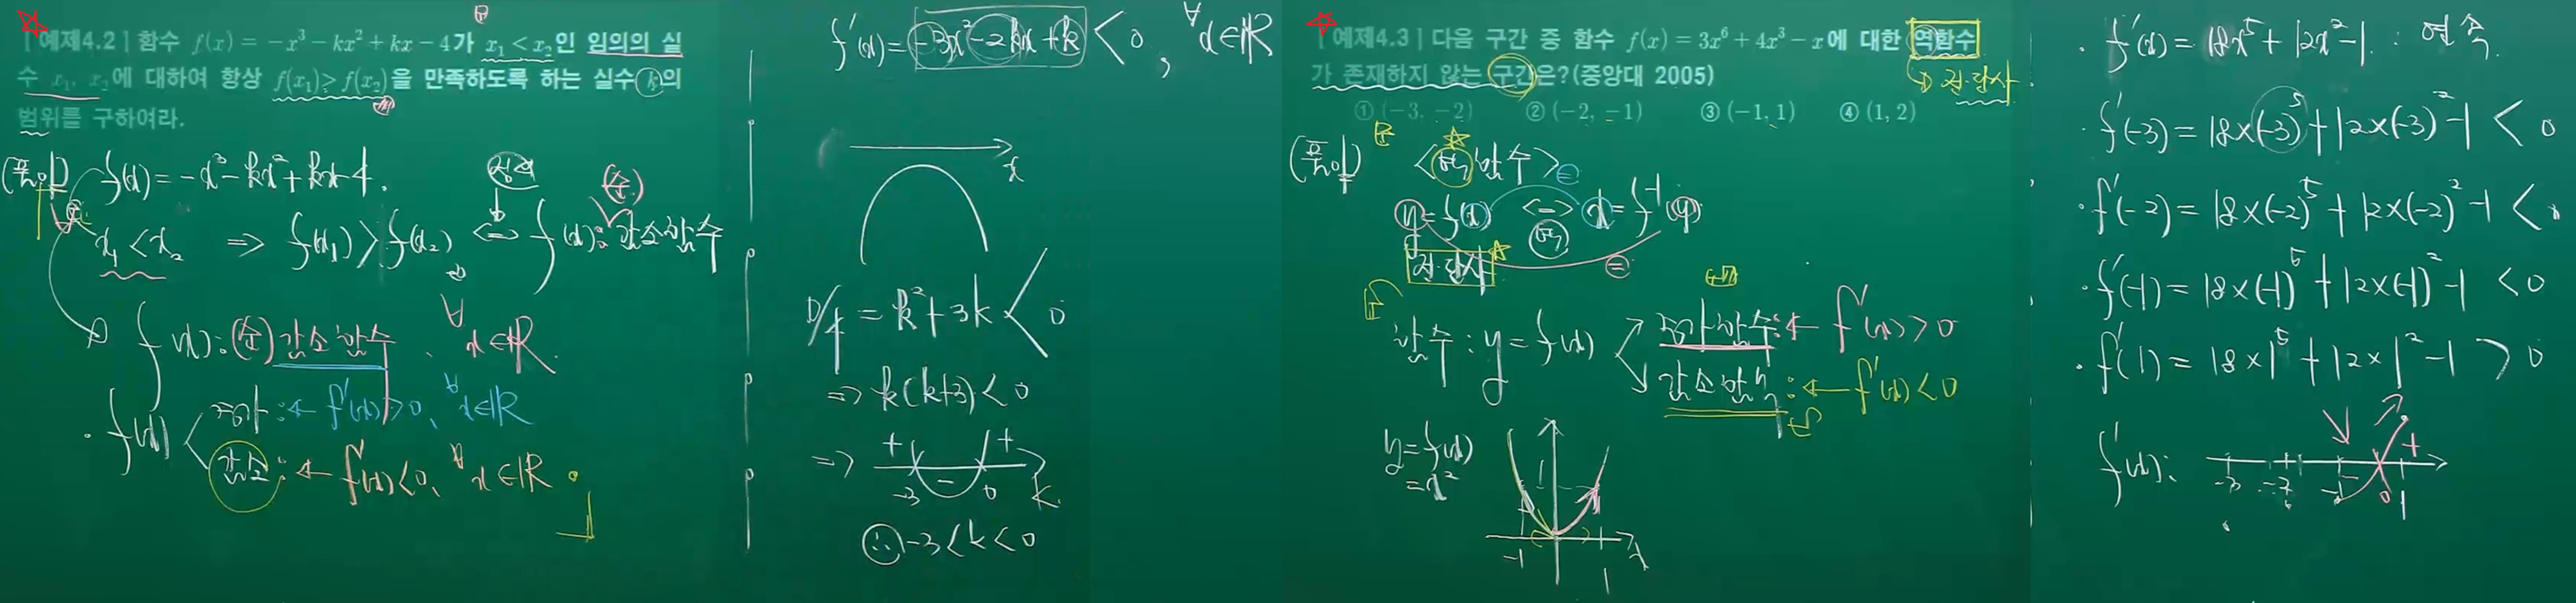 [예제4.2] 함수 f(x) = -x³ - kx² + kx - 4가 x₁ < x₂인 임의의 실
수 x₁, x₂에 대하여 항상 f(x₁) > f(x₂)을 만족하도록 하는 실수 k의
범위를 구하여라.
(풀이) f(x) = -x³ - kx² + kx - 4.
정의
x₁ < x₂ ⇒ f(x₁) > f(x₂) ⇔ f(x): 감소함수
(순)
f(x): (순)감소함수, ∀x∈ℝ.
· f(x)
증가: ← f'(x) > 0, ∀x∈ℝ
감소: ← f'(x) < 0, ∀x∈ℝ
f'(x) = -3x² - 2kx + k < 0, ∀x∈ℝ
x
D/4 = k² + 3k < 0
⇒ k(k+3) < 0
⇒ + - + -3 0 k
∴ -3 < k < 0
[예제4.3] 다음 구간 중 함수 f(x) = 3x⁶ + 4x³ - x에 대한 역함수
가 존재하지 않는 구간은?(중앙대 2005)
전·단사
① (-3, -2) ② (-2, -1) ③ (-1, 1) ④ (1, 2)
(풀이) <역함수>
y = f(x) ⇔ x = f⁻¹(y)
역
전·단사
함수: y = f(x)
증가함수: ← f'(x) > 0
감소함수: ← f'(x) < 0
y = f(x)
= x²
-1 1 x
· f'(x) = 18x⁵ + 12x² - 1 : 연속.
· f'(-3) = 18×(-3)⁵ + 12×(-3)² - 1 < 0
· f'(-2) = 18×(-2)⁵ + 12×(-2)² - 1 < 0
· f'(-1) = 18×(-1)⁵ + 12×(-1)² - 1 < 0
· f'(1) = 18×1⁵ + 12×1² - 1 > 0
f'(x): -3 -2 -1 0 1 +